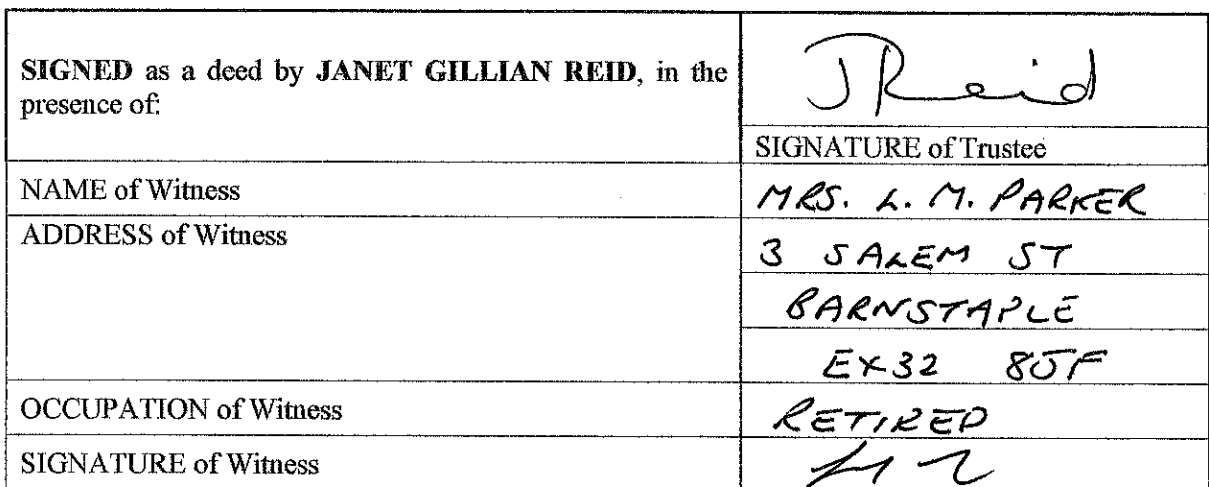 SIGNED as a deed by JANET GILLIAN REID, in the
presence of:
J Reid
SIGNATURE of Trustee
NAME of Witness
MRS. L. M. PARKER
ADDRESS of Witness
3 SALEM ST
BARNSTAPLE
EX32 8JF
OCCUPATION of Witness
RETIRED
SIGNATURE of Witness